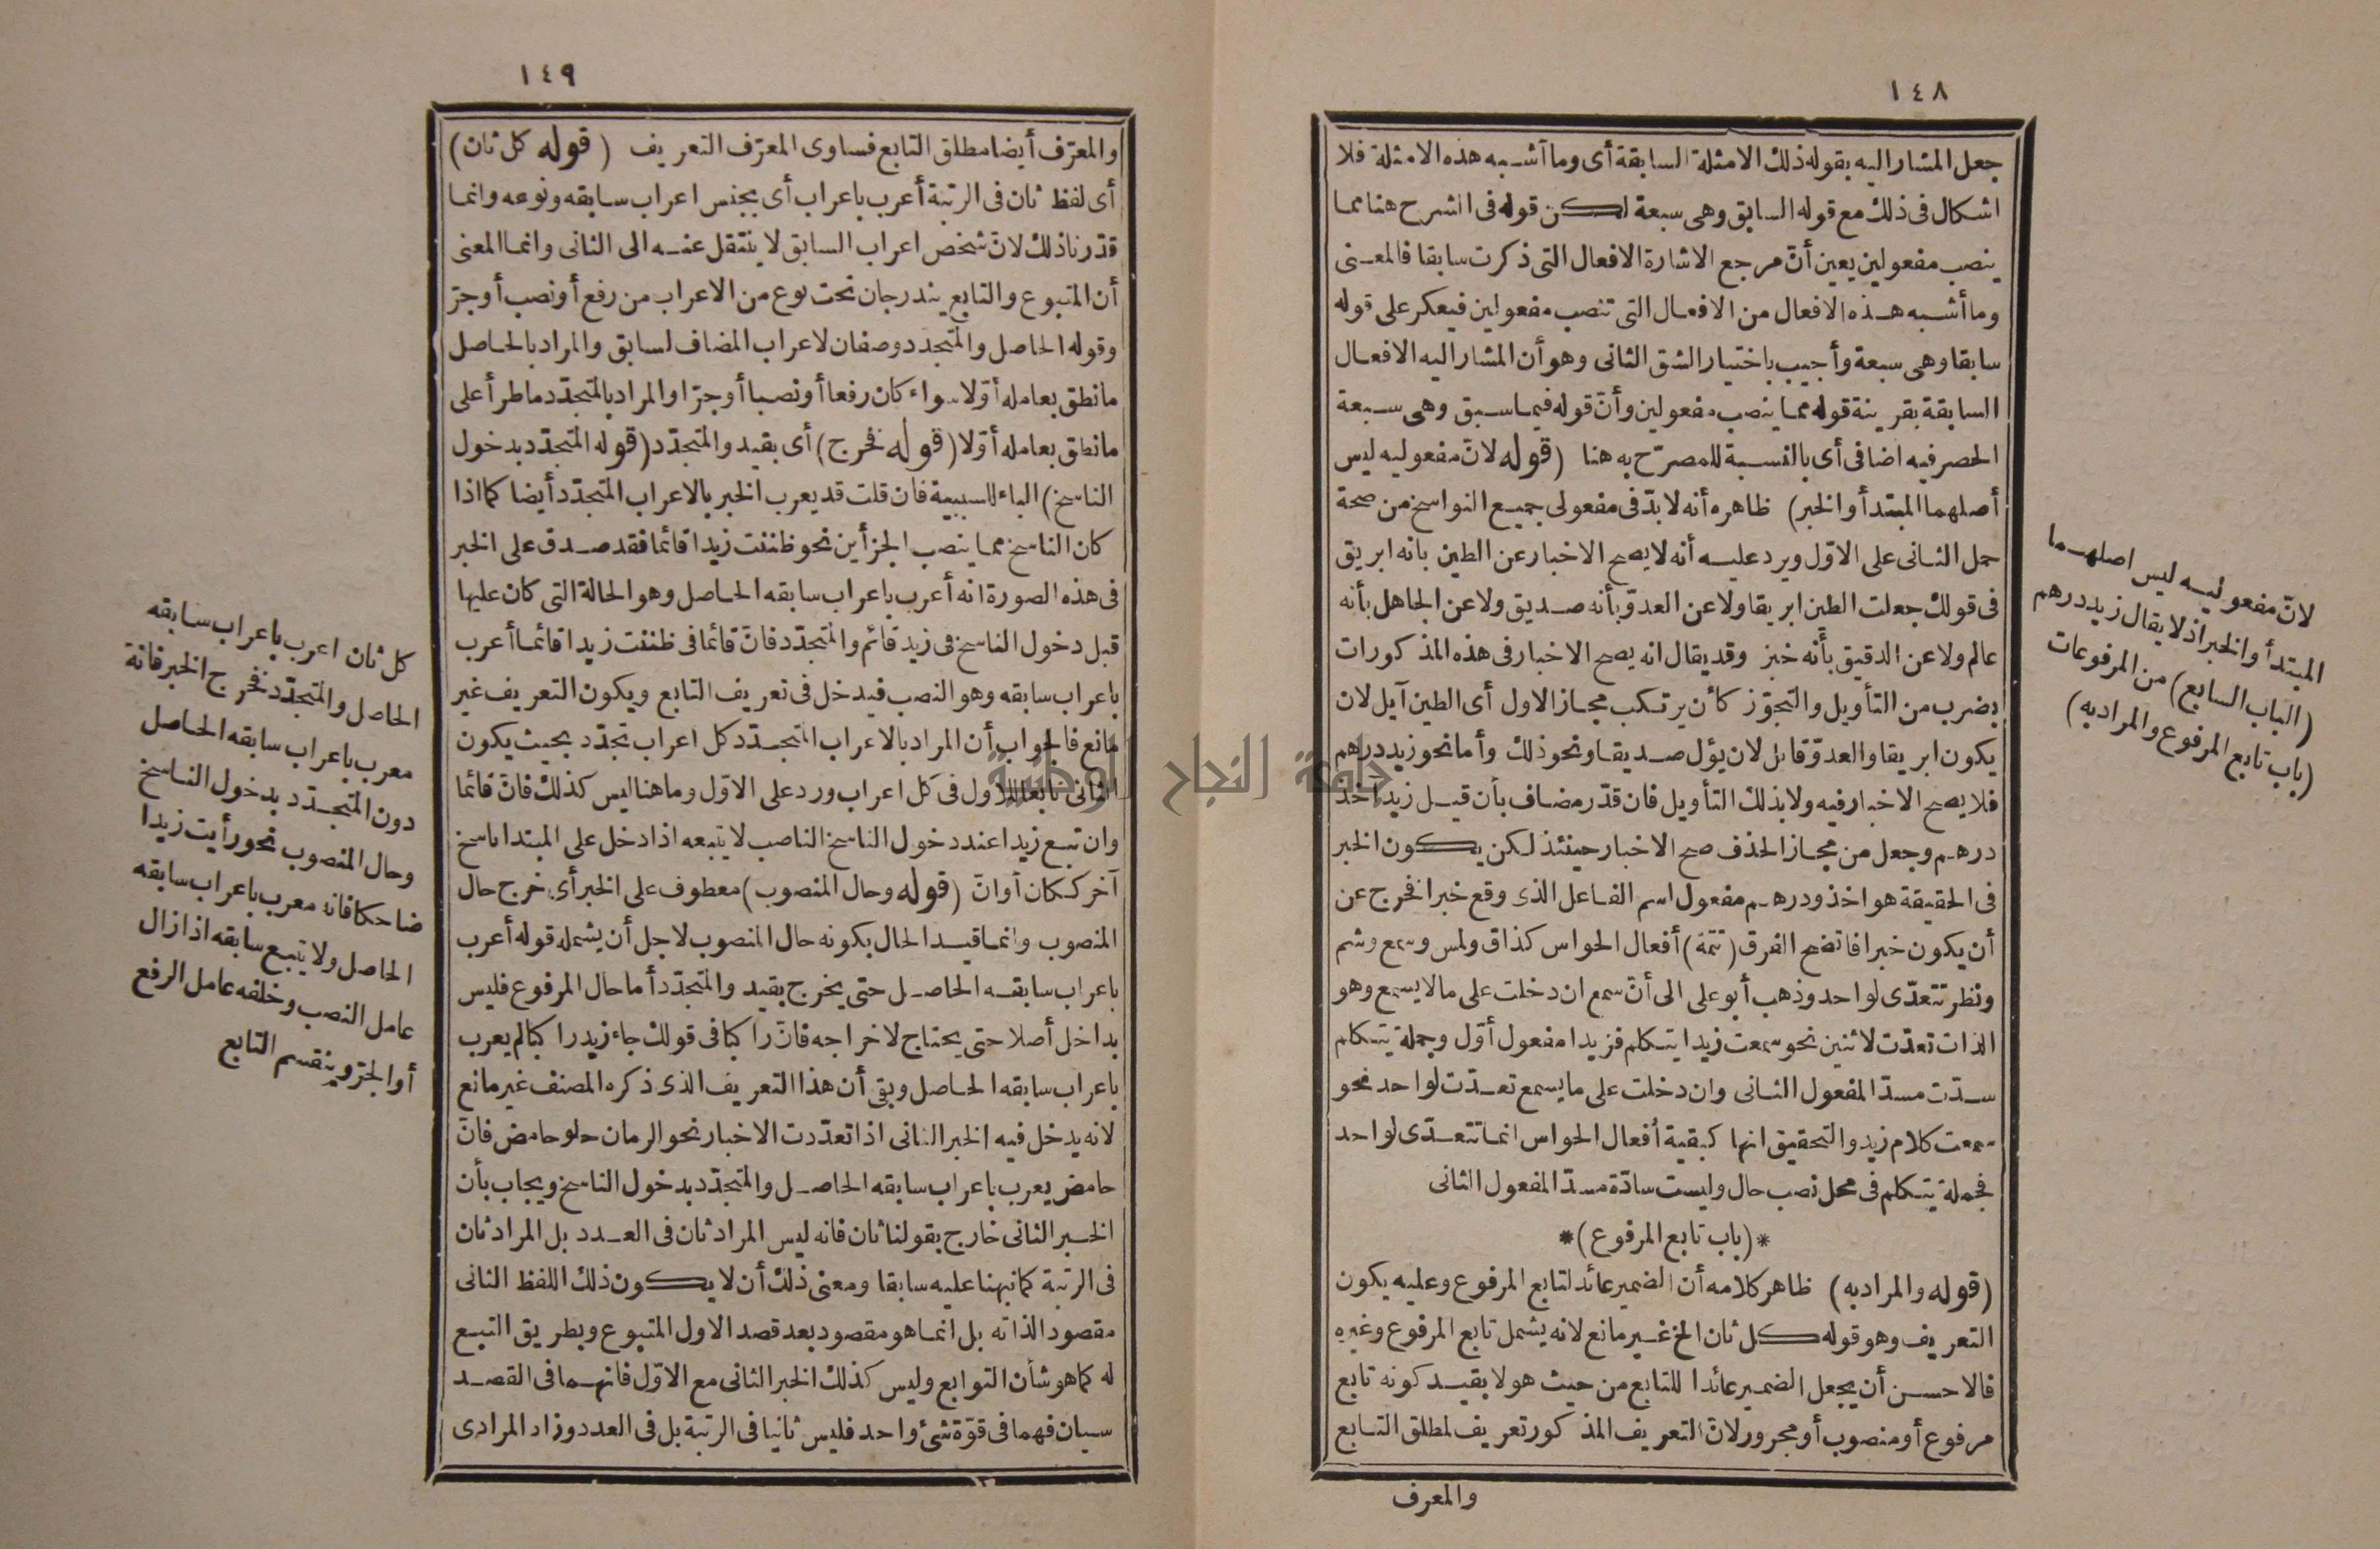 ١٤٨
جعل المشار اليه بقوله ذلك الامثلة السابقة أى وما أشبه هذه الامثلة فلا
اشكال فى ذلك مع قوله السابق وهى سبعة لكن قوله فى الشرح هنا مما
ينصب مفعولين يعين أنّ مرجع الاشارة الافعال التى ذكرت سابقا فالمعنى
وما أشبه هذه الافعال من الافعال التى تنصب مفعولين فيعكر على قوله
سابقا وهى سبعة وأجيب باختيار الشق الثانى وهو أن المشار اليه الافعال
السابقة بقرينة قوله مما ينصب مفعولين وأنّ قوله فيما سبق وهى سبعة
الحصر فيه اضافى أى بالنسبة للمصرّح به هنا (قوله لانّ مفعوليه ليس
أصلهما المبتدأ والخبر) ظاهره أنه لا بدّ فى مفعولى جميع النواسخ من صحة
حمل الثانى على الاوّل ويرد عليه أنه لا يصح الاخبار عن الطين بانه ابريق
فى قولك جعلت الطين ابريقا ولا عن العدوّ بأنه صديق ولا عن الجاهل بأنه
عالم ولا عن الدقيق بأنه خبز وقد يقال انه يصح الاخبار فى هذه المذكورات
بضرب من التأويل والتجوّز كأن يرتكب مجاز الاول أى الطين آيل لان
يكون ابريقا والعدوّ قابل لان يؤل صديقا ونحو ذلك وأما نحو زيد درهم
فلا يصح الاخبار فيه ولا بذلك التأويل فان قدّر مضاف بأن قيل زيد آخذ
درهم وجعل من مجاز الحذف صح الاخبار حينئذ لكن يكون الخبر
فى الحقيقة هو اخذ ودرهم مفعول اسم الفاعل الذى وقع خبرا فخرج عن
أن يكون خبرا فاتضح الفرق (تتمّة) أفعال الحواس كذاق ولمس وسمع وشم
ونظر تتعدّى لواحد وذهب أبو على الى أنّ سمع ان دخلت على ما لا يسمع وهو
الذات تعدّت لاثنين نحو سمعت زيدا يتكلم فزيدا مفعول أوّل وجملة يتكلم
سدّت مسدّ المفعول الثانى وان دخلت على ما يسمع تعدّت لواحد نحو
سمعت كلام زيد والتحقيق انها كبقية أفعال الحواس انما تتعدّى لواحد
فجملة يتكلم فى محل نصب حال وليست سادّة مسدّ المفعول الثانى
*(باب تابع المرفوع)*
(قوله والمراد به) ظاهر كلامه أن الضمير عائد لتابع المرفوع وعليه يكون
التعريف وهو قوله كل ثان الخ غير مانع لانه يشمل تابع المرفوع وغيره
فالاحسن أن يجعل الضمير عائدا للتابع من حيث هو لا بقيد كونه تابع
مرفوع أو منصوب أو مجرور لانّ التعريف المذكور تعريف لمطلق التابع
والمعرف
لانّ مفعوليه ليس اصلهما
المبتدأ والخبر اذ لا يقال زيد درهم
(الباب السابع) من المرفوعات
(باب تابع المرفوع والمراد به)
١٤٩
والمعرّف أيضا مطلق التابع فساوى المعرّف التعريف (قوله كل ثان)
أى لفظ ثان فى الرتبة أعرب باعراب أى بجنس اعراب سابقه ونوعه وانما
قدّرنا ذلك لانّ شخص اعراب السابق لا ينتقل عنه الى الثانى وانما المعنى
أن المتبوع والتابع يندرجان تحت نوع من الاعراب من رفع أو نصب أو جرّ
وقوله الحاصل والمتجدد وصفان لاعراب المضاف لسابق والمراد بالحاصل
ما نطق بعامله أوّلا سواء كان رفعا أو نصبا أو جرّا والمراد بالمتجدّد ما طرأ على
ما نطق بعامله أوّلا (قوله فخرج) أى بقيد والمتجدّد (قوله المتجدّد بدخول
الناسخ) الباء للسببية فان قلت قد يعرب الخبر بالاعراب المتجدّد أيضا كما اذا
كان الناسخ مما ينصب الجزأين نحو ظننت زيدا قائما فقد صدق على الخبر
فى هذه الصورة انه أعرب باعراب سابقه الحاصل وهو الحالة التى كان عليها
قبل دخول الناسخ فى زيد قائم والمتجدّد فانّ قائما فى ظننت زيدا قائما أعرب
باعراب سابقه وهو النصب فيدخل فى تعريف التابع ويكون التعريف غير
مانع فالجواب أن المراد بالاعراب المتجدّد كل اعراب تجدّد بحيث يكون
الثانى تابعا للاول فى كل اعراب ورد على الاوّل وما هنا ليس كذلك فانّ قائما
وان تبع زيدا عند دخول الناسخ الناصب لا يتبعه اذا دخل على المبتدا ناسخ
آخر ككان أو انّ (قوله وحال المنصوب) معطوف على الخبر أى خرج حال
المنصوب وانما قيد الحال بكونه حال المنصوب لاجل أن يشمله قوله أعرب
باعراب سابقه الحاصل حتى يخرج بقيد والمتجدّد أما حال المرفوع فليس
بداخل أصلا حتى يحتاج لاخراجه فانّ راكبا فى قولك جاء زيد راكبا لم يعرب
باعراب سابقه الحاصل وبقى أن هذا التعريف الذى ذكره المصنف غير مانع
لانه يدخل فيه الخبر الثانى اذا تعدّدت الاخبار نحو الرمان حلو حامض فانّ
حامض يعرب باعراب سابقه الحاصل والمتجدّد بدخول الناسخ ويجاب بأن
الخبر الثانى خارج بقولنا ثان فانه ليس المراد ثان فى العدد بل المراد ثان
فى الرتبة كما نبهنا عليه سابقا ومعنى ذلك أن لا يكون ذلك اللفظ الثانى
مقصودا لذاته بل انما هو مقصود بعد قصد الاول المتبوع وبطريق التبع
له كما هو شأن التوابع وليس كذلك الخبر الثانى مع الاوّل فانهما فى القصد
سيان فهما فى قوّة شئ واحد فليس ثانيا فى الرتبة بل فى العدد وزاد المرادى
كل ثان اعرب باعراب سابقه
الحاصل والمتجدّد فخرج الخبر فانه
معرب باعراب سابقه الحاصل
دون المتجدّد بدخول الناسخ
وحال المنصوب نحو رأيت زيدا
ضاحكا فانه معرب باعراب سابقه
الحاصل ولا يتبع سابقه اذا زال
عامل النصب وخلفه عامل الرفع
أو الجرّ وينقسم التابع
جامعة النجاح الوطنية